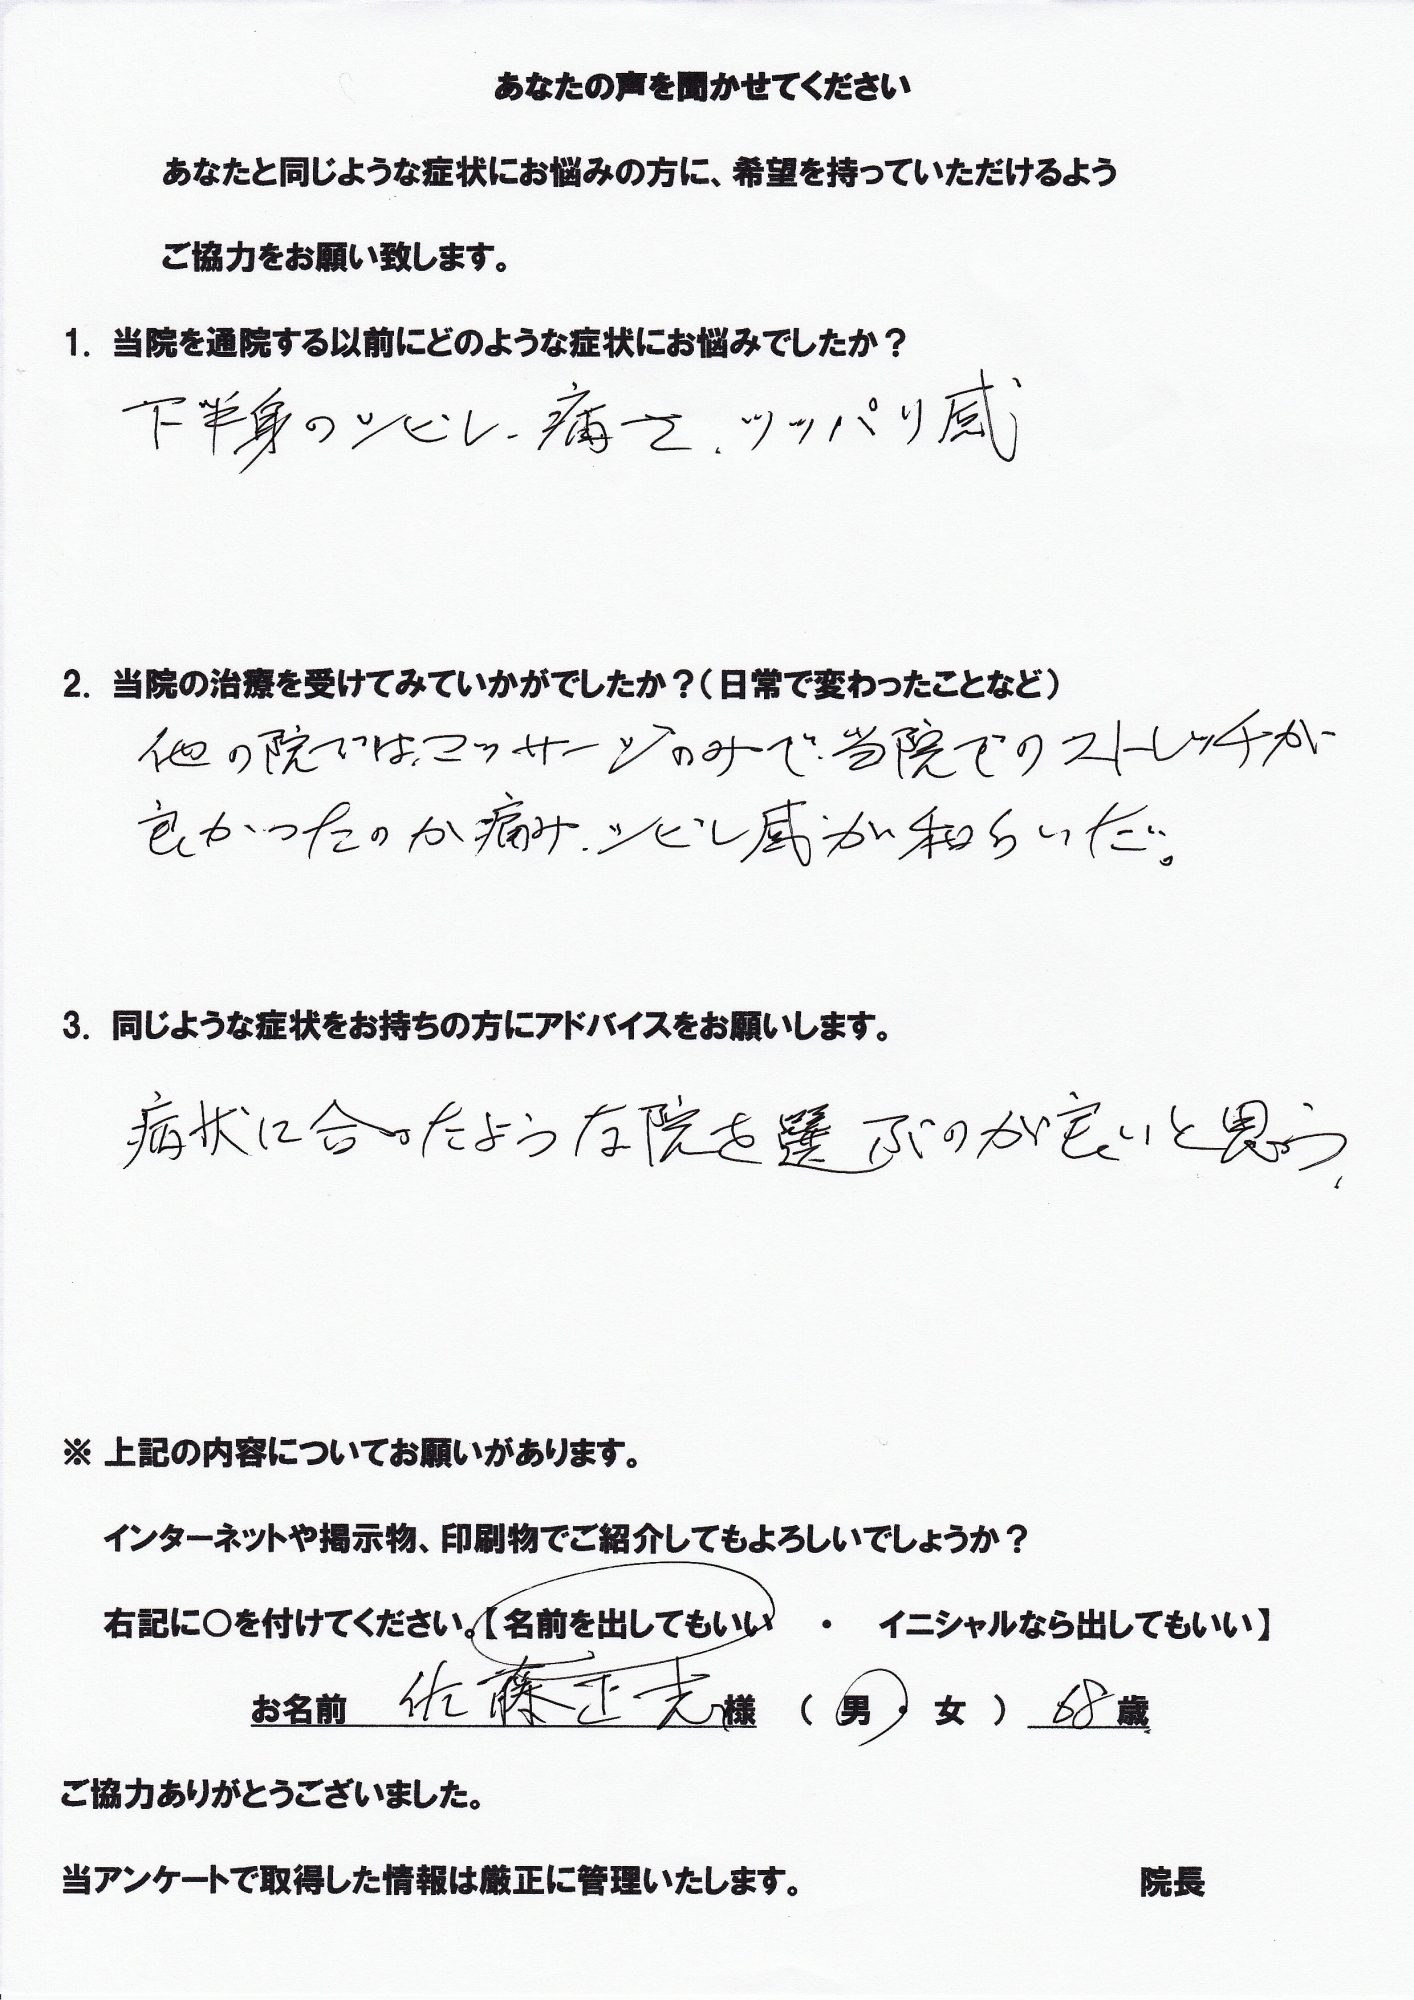 あなたの声を聞かせてください
あなたと同じような症状にお悩みの方に、希望を持っていただけるよう
ご協力をお願い致します。
1. 当院を通院する以前にどのような症状にお悩みでしたか？
下半身のシビレ、痛さ、ツッパリ感
2. 当院の治療を受けてみていかがでしたか？（日常で変わったことなど）
他の院では、マッサージのみで、当院でのストレッチが
良かったのか痛み、シビレ感が和らいだ。
3. 同じような症状をお持ちの方にアドバイスをお願いします。
病状に合ったような院を選ぶのが良いと思う、
※ 上記の内容についてお願いがあります。
インターネットや掲示物、印刷物でご紹介してもよろしいでしょうか？
右記に○を付けてください。【名前を出してもいい ・ イニシャルなら出してもいい】
お名前 佐藤正光 様 （ 男 ・ 女 ） 68 歳
ご協力ありがとうございました。
当アンケートで取得した情報は厳正に管理いたします。 院長